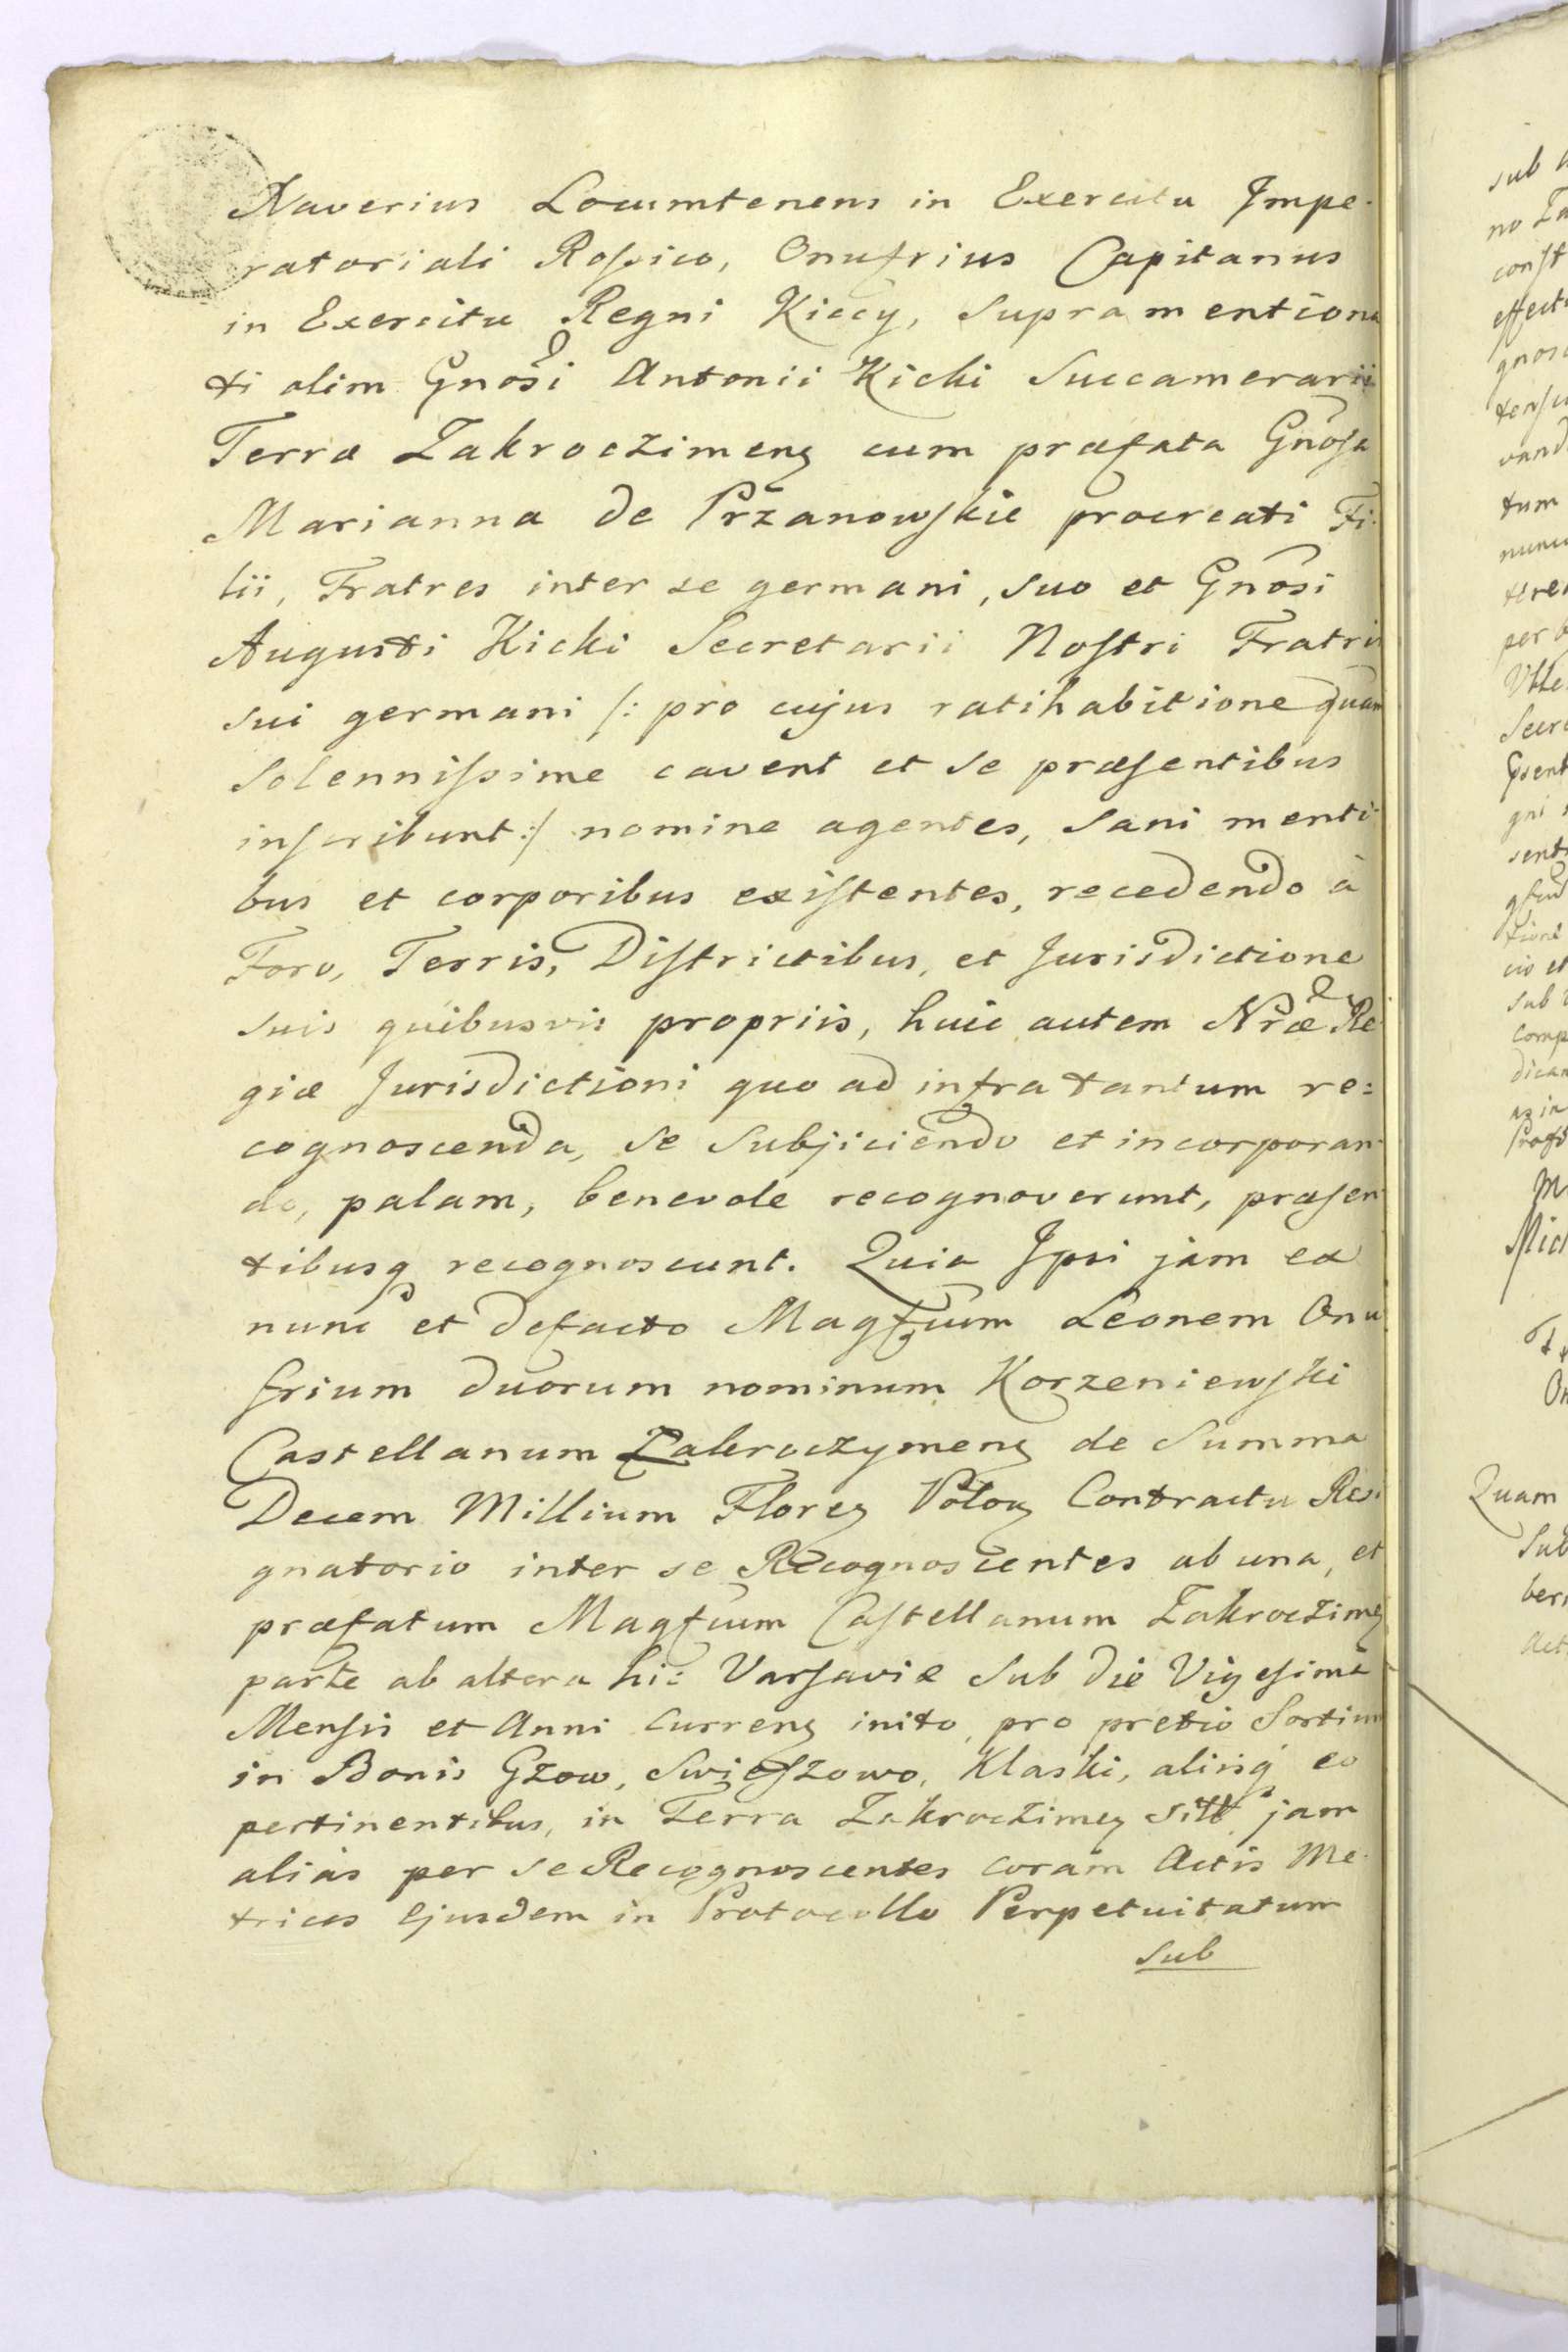 Xaverius Locumtenens in Exercitu Impe-
ratoriali Rossico, Onufrius Capitanus
in Exercitu Regni Kiccy, supramentiona
ti olim Gnosi Antonii Kicki Succamerarii
Terræ Zakroczimens cum præfata Gnosa
Marianna de Przanowskie procreati Fi-
lii, Fratres inter se germani, suo et Gnosi
Augusti Kicki Secretarii Nostri Fratris
sui germani /: pro cujus ratihabitione quam
solennissime cavent et se præsentibus
inscribunt :/ nomine agentes, sani menti-
bus et corporibus existentes, recedendo à
Foro, Terris, Districtibus, et Jurisdictione
suis quibusvis propriis, huic autem Nræ Re
giæ Jurisdictioni quo ad infra tantum re=
cognoscenda, se subjiciendo et incorporan-
do, palam, benevole recognoverunt, præsen
tibusq recognoscunt. Quia Ipsi jam ex
nunc et defacto Magfcum Leonem Onu
frium duorum nominum Korzeniewski
Castellanum Zakroczymens de Summa
Decem Millium Floren Polon Contractu Resi
gnatorio inter se Recognoscentes ab una, et
præfatum Magfcum Castellanum Zakroczimen
parte ab altera hic Varsaviæ sub die Vigesima
Mensis et Anni Curren inito, pro pretio Sortium
in Bonis Gzow, Swięszowo, Klaski, aliisq eo
pertinentibus, in Terra Zakroczimen sitt jam
alias per se Recognoscentes coram Actis Me-
trices Ejusdem in Protocollo Perpetuitatum
sub